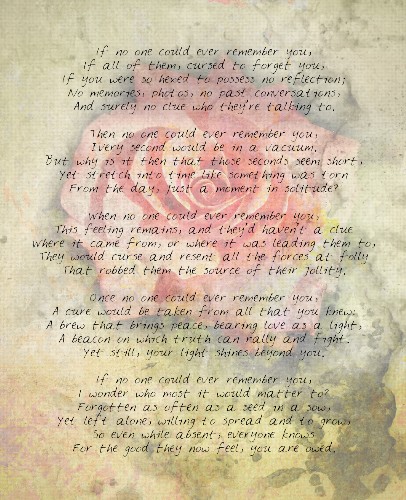 If no one could ever remember you,
If all of them, cursed to forget you,
If you were so hexed to possess no reflection;
No memories, photos, no past conversations,
And surely no clue who they're talking to.
Then no one could ever remember you;
Every second would be in a vacuum.
But why is it then that those seconds seem short,
Yet stretch into time like something was torn
From the day, just a moment in solitude?
When no one could ever remember you,
This feeling remains, and they'd haven't a clue
Where it came from, or where it was leading them to,
They would curse and resent all the forces at folly
That robbed them the source of their jollity.
Once no one could ever remember you,
A cure would be taken from all that you knew:
A brew that brings peace, bearing love as a light,
A beacon on which truth can rally and fight.
Yet still, your light shines beyond you.
If no one could ever remember you,
I wonder who most it would matter to?
Forgotten as often as a seed in a sow,
Yet left alone, willing to spread and to grow,
So even while absent, everyone knows
For the good they now feel, you are owed.